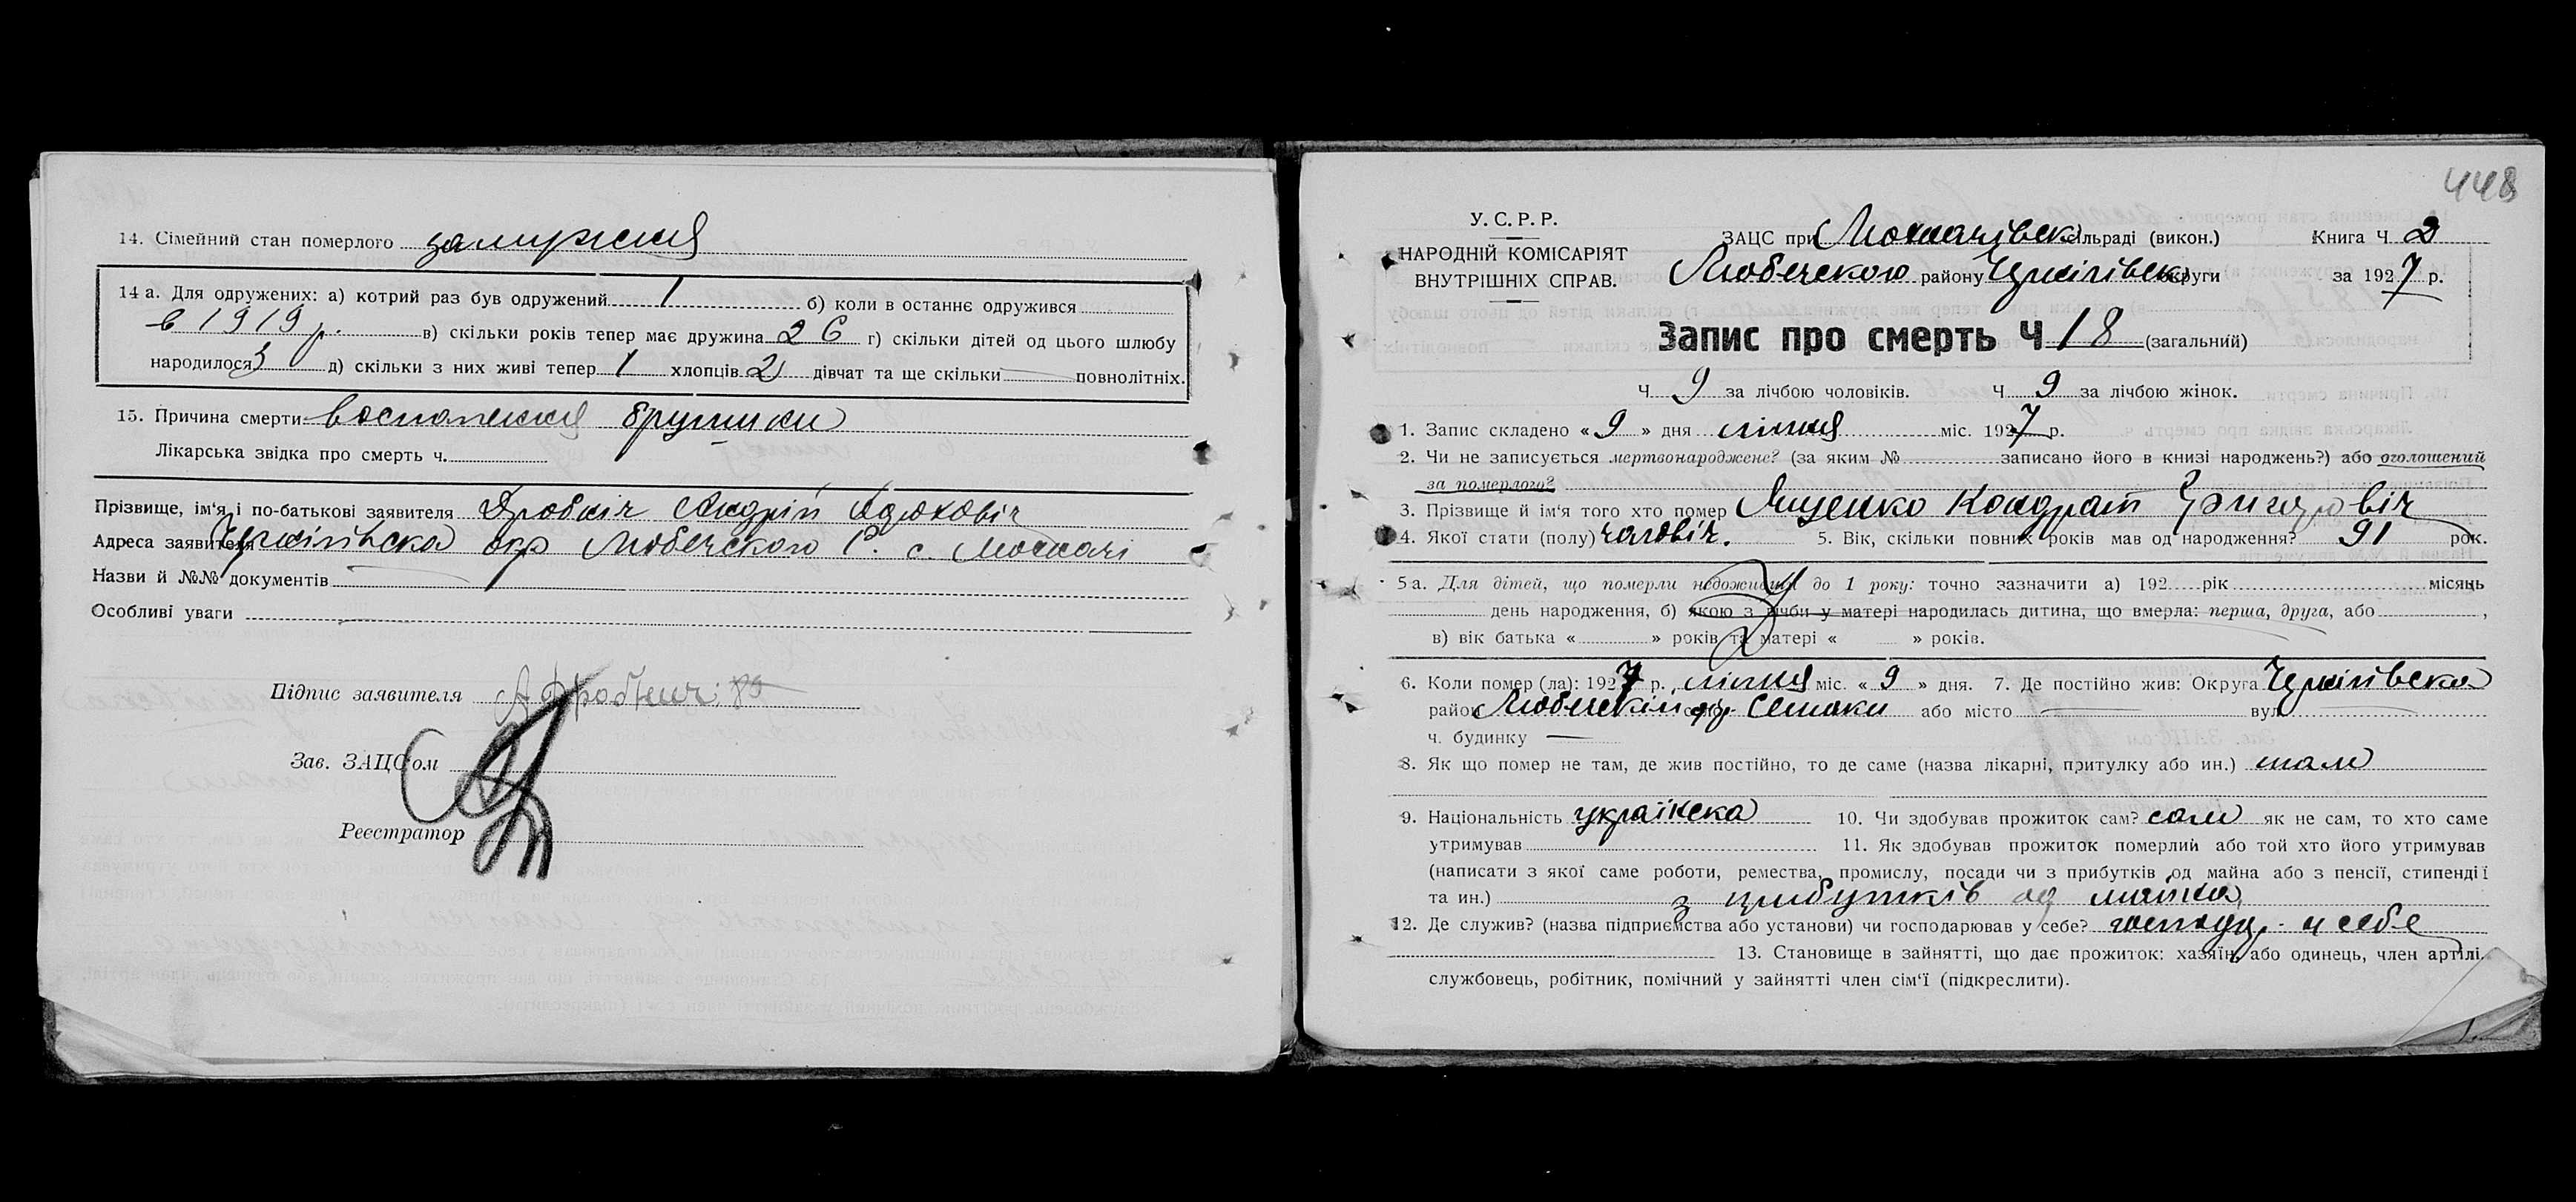 14. Сімейний стан померлого замужня
14 а. Для одружених: а) котрий раз був одружений 1 б) коли в останнє одружився
в 1919 р. в) скільки років тепер має дружина 26 г) скільки дітей од цього шлюбу
народилося 3 д) скільки з них живі тепер 1 хлопців 2 дівчат та ще скільки — повнолітніх.
15. Причина смерти воспаления брушики
Лікарська звідка про смерть ч.
Прізвище, ім'я і по-батькові заявителя Дробніч Андрій
Адреса заявителя Чернігівська окр Любечського Р. с. Мохначі
Назви й №№ документів
Особливі уваги
Підпис заявителя АДробнич
Зав. ЗАЦСом
Реєстратор
448
У. С. Р. Р.
НАРОДНІЙ КОМІСАРІЯТ
ВНУТРІШНІХ СПРАВ.
ЗАЦС при Мохначівск сільраді (викон.) Книга Ч 2
Любечского району Чернігівськ округи за 1927 р.
Запис про смерть Ч 18 (загальний)
Ч 9 за лічбою чоловіків. Ч 9 за лічбою жінок.
1. Запис складено «9» дня липня міс. 1927 р.
2. Чи не записується мертвонароджене? (за яким № записано його в книзі народжень?) або оголошений
за померлого?
3. Прізвище й ім'я того хто помер Яценко Кондрат Григорович
4. Якої стати (полу) чоловіч. 5. Вік, скільки повних років мав од народження? 91 рок.
5 а. Для дітей, що померли недоживши до 1 року: точно зазначити а) 192 рік місяць
день народження, б) якою з лічби у матері народилась дитина, що вмерла: перша, друга, або ,
в) вік батька « » років та матері « » років.
6. Коли помер (ла): 1927 р. липня міс. «9» дня. 7. Де постійно жив: Округа Чернігівська
район Любечський село Семаки або місто — вул.
ч. будинку —
8. Як що помер не там, де жив постійно, то де саме (назва лікарні, притулку або ин.) там
9. Національність українска 10. Чи здобував прожиток сам? сам як не сам, то хто саме
утримував 11. Як здобував прожиток померлий або той хто його утримував
(написати з якої саме роботи, ремества, промислу, посади чи з прибутків од майна або з пенсії, стипендії
та ин.) з прибутків од майна
12. Де служив? (назва підприємства або установи) чи господарював у себе? господ. у себе
13. Становище в зайнятті, що дає прожиток: хазяїн, або одинець, член артілі.
службовець, робітник, помічний у зайнятті член сім'ї (підкреслити).